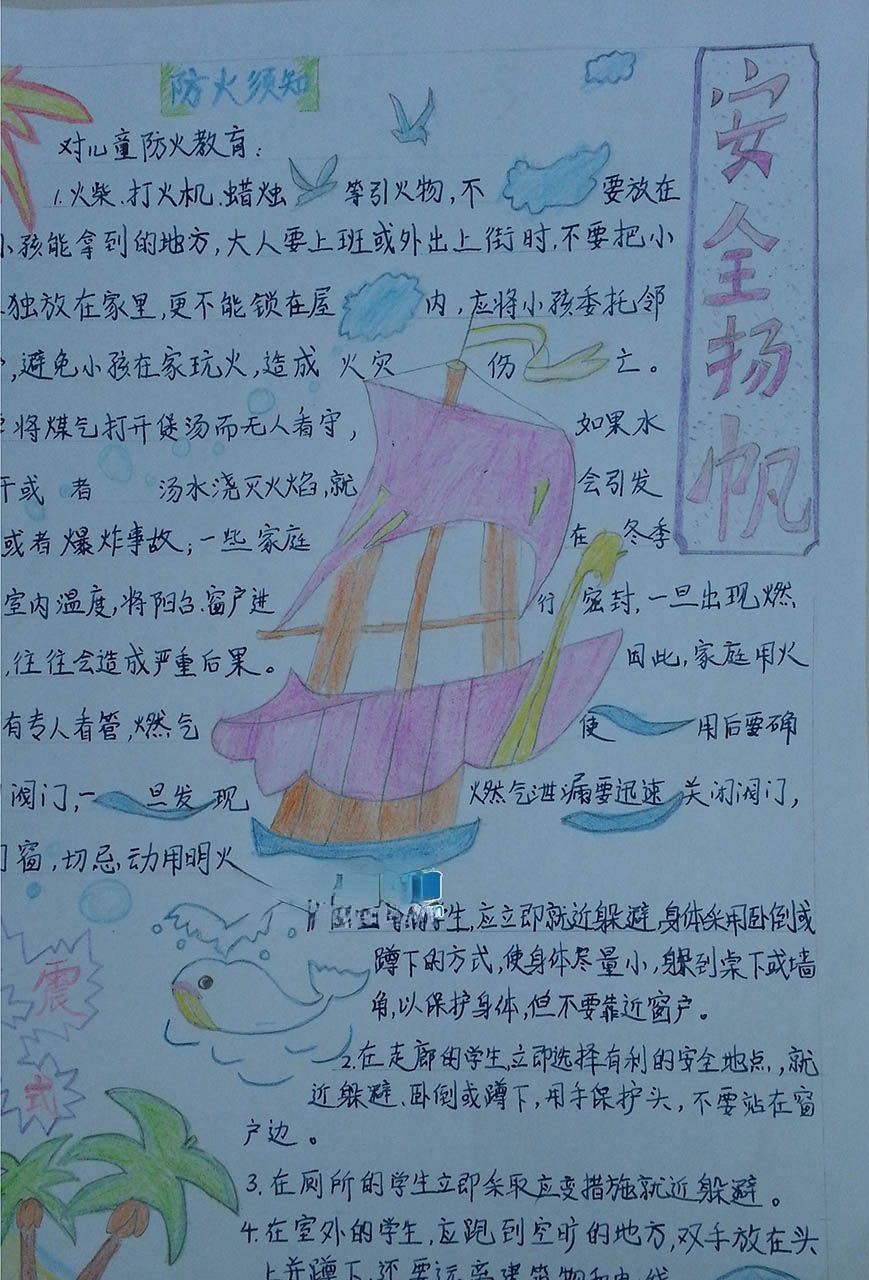 防火须知
安全扬帆
对儿童防火教育：
1.火柴、打火机、蜡烛等引火物，不要放在
小孩能拿到的地方，大人要上班或外出上街时，不要把小
独放在家里，更不能锁在屋内，应将小孩委托邻
，避免小孩在家玩火，造成火灾伤亡。
将煤气打开煲汤而无人看守，如果水
干或者汤水浇灭火焰，就会引发
或者爆炸事故；一些家庭在冬季
室内温度，将阳台、窗户进行密封，一旦出现燃
，往往会造成严重后果。因此，家庭用火
有专人看管，燃气使用后要确
阀门，一旦发现燃气泄漏要迅速关闭阀门，
窗，切忌动用明火
学生，应立即就近躲避，身体采用卧倒或
蹲下的方式，使身体尽量小，躲到桌下或墙
角，以保护身体，但不要靠近窗户。
2.在走廊的学生，立即选择有利的安全地点，，就
近躲避、卧倒或蹲下，用手保护头，不要站在窗
户边。
3.在厕所的学生立即采取应变措施就近躲避。
4.在室外的学生，应跑到空旷的地方，双手放在头
上并蹲下，还要远离建筑物和电线
震
式